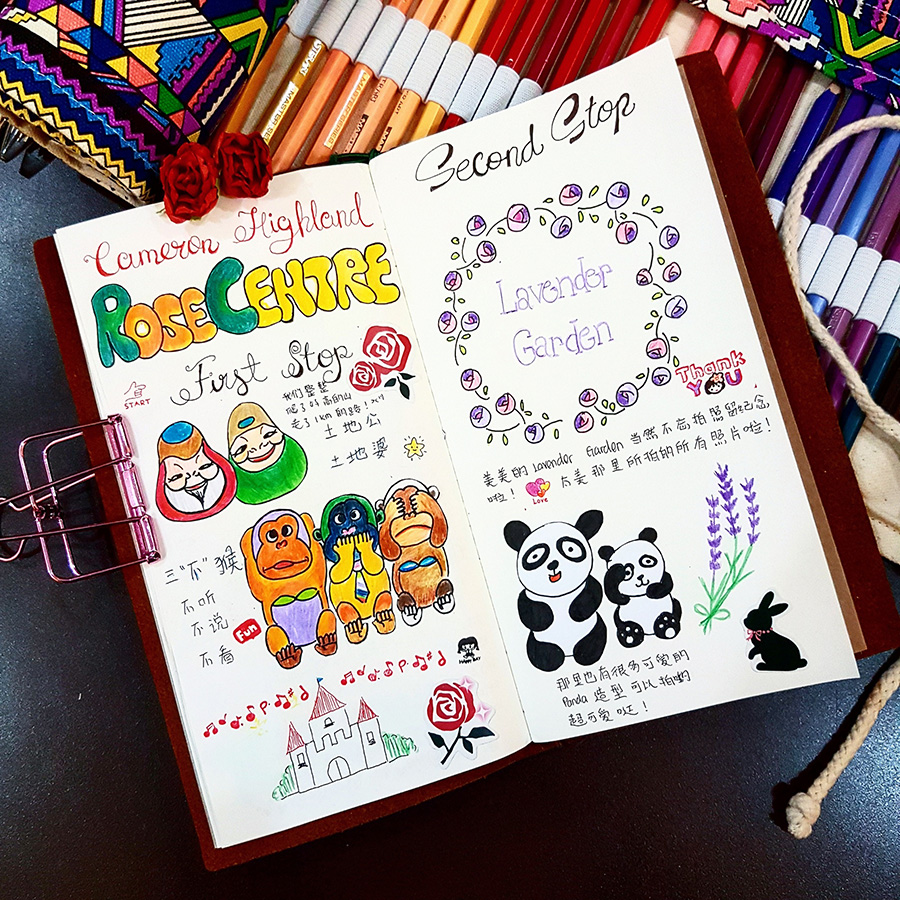 Cameron Highland
ROSE CENTRE
First Stop
START
我们整整
爬了好高的山
走了1km的路！
土地公
土地婆
三"不"猴
不听
不说
不看
Fun
HAPPY DAY
Second Stop
Lavender
Garden
Thank
YOU
美美的 Lavender Garden 当然不忘拍照留纪念
啦！ Love 太美那里所拍的所有照片啦！
那里也有很多可爱的
Panda 造型可以拍哟
超可爱哒！